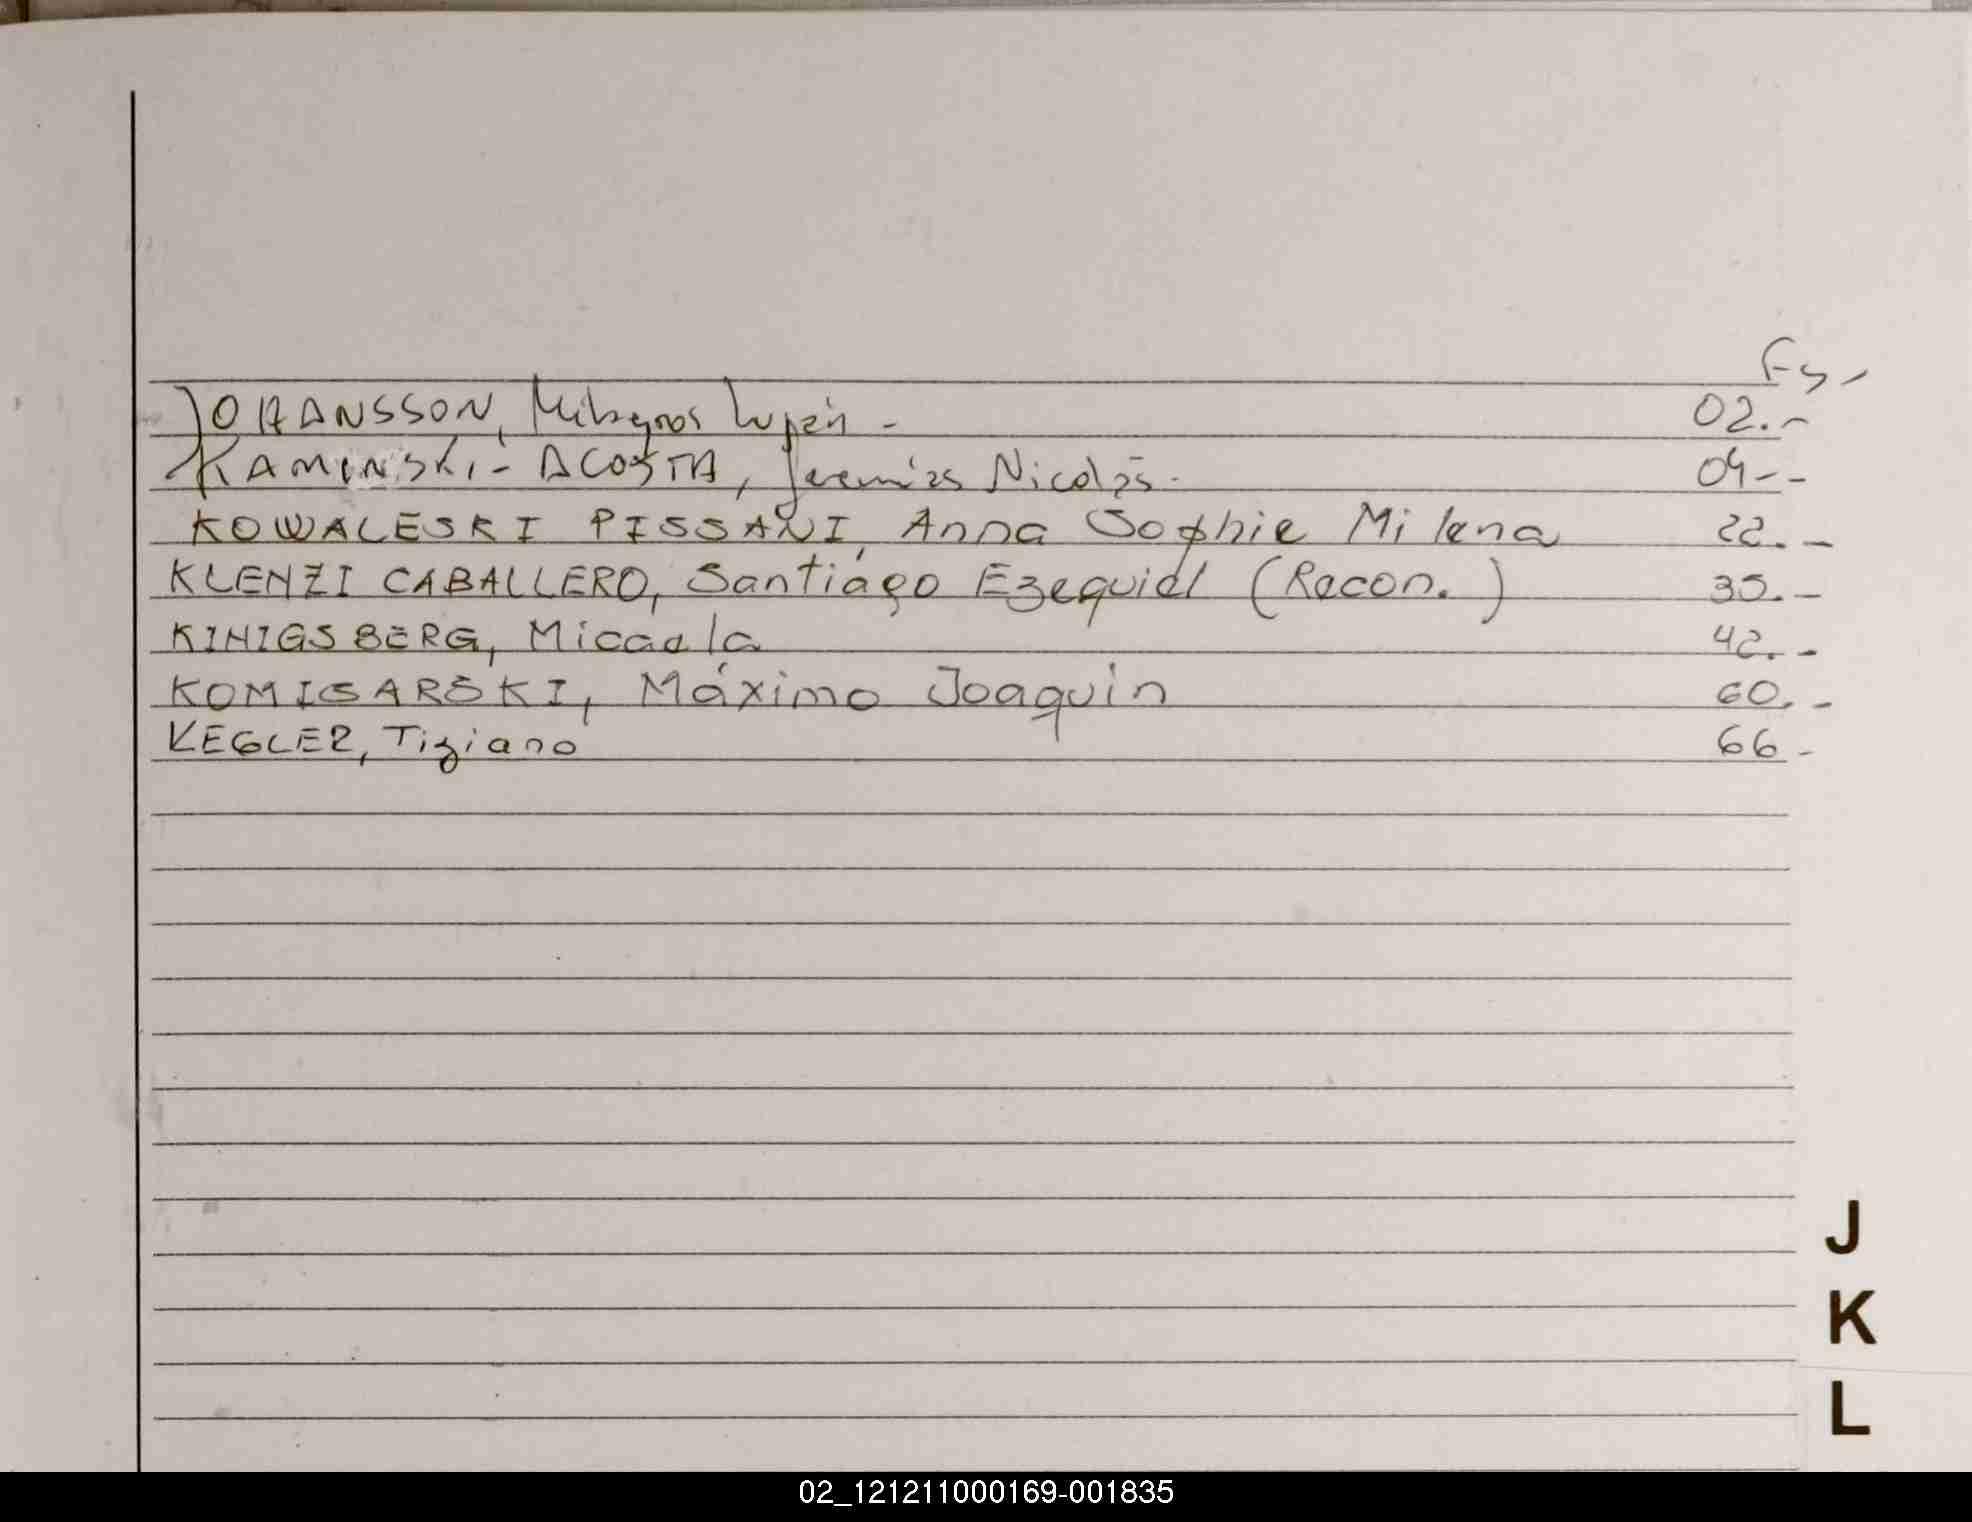 Fs.
JOHANSSON, Milagros Luján - 02.-
KAMINSKI - ACOSTA, Jeremías Nicolás. 04--
KOWALESKI PISSANI, Anna Sophie Milena 22.-
KLENZI CABALLERO, Santiago Ezequiel (Recon.) 35.-
KINIGSBERG, Micaela 42.-
KOMISARSKI, Máximo Joaquín 60.-
KEGLER, Tiziano 66-
J
K
L
02_121211000169-001835